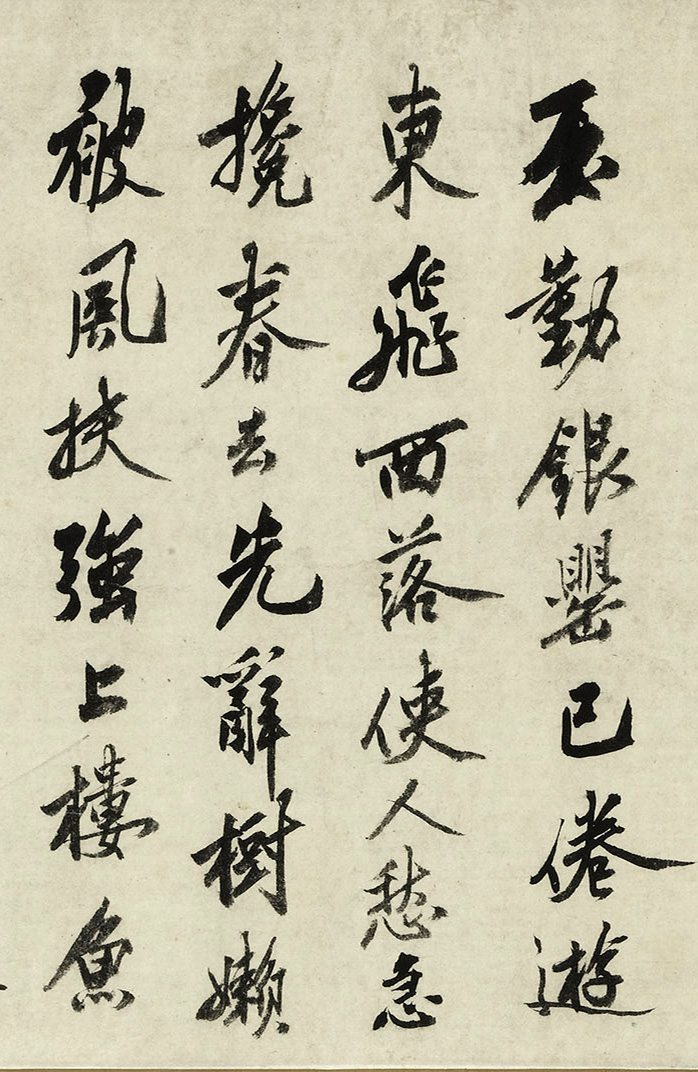 勒銀罌已倦遊
東飛西落使人愁急
攙春去先辭樹嬾
被風扶強上樓魚